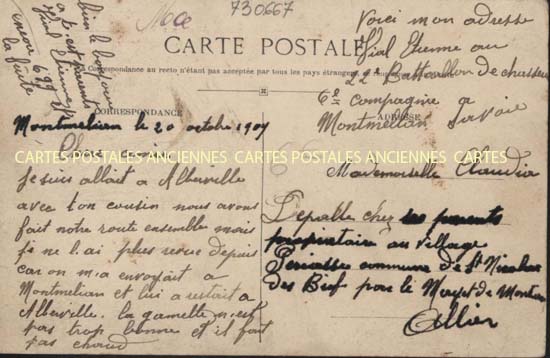 Nice
730667
Voici mon adresse
Vial Etienne au
22 Battaillon de chasseur
6e compagnie a
Montmelian savoie
bien le bonjour
a p. est parents
Vial Etienne
encore 699 et
la fuite
CARTE POSTALE
La Correspondance au recto n'étant pas acceptée par tous les pays étrangers
CORRESPONDANCE
ADRESSE
Montmelian le 20 octobre 1907
Chère
CARTES POSTALES ANCIENNES CARTES POSTALES ANCIENNES CARTES
Je suis allait a Alberville
avec ton cousin nous avons
fait notre route ensemble mais
je ne l.ai plus revue depuis
car on m,a envoyait a
Montmelian et lui a restait a
Alberville. la gamelle n,est
pas trop bonne et il fait
pas chaud
Mademoiselle Claudia
Depalle chez ses parents
propriétaire au village
commune de St Nicolas
des Bief par le Mayet de Montan
Allier